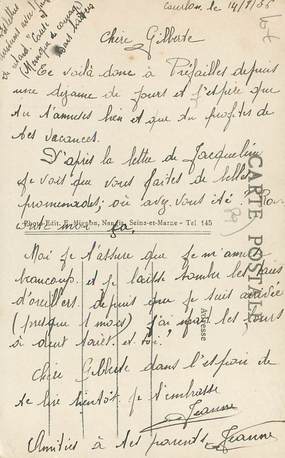 Courlon, le 14/8/36
Chère Gilberte
Te voilà donc à Préfailles depuis
une dizaine de jours et j'espère que
tu t'amuses bien et que tu profites de
tes vacances.
D'après la lettre de Jacqueline
je vois que vous faites de belles
promenades; où avez vous été. Ra-
conte moi ça.
Photo-Edit. E. Mignon, Nangis, Seine-et-Marne - Tel 145
CARTE POSTALE
Adresse
Moi je t'assure que je m'amuse
beaucoup et je laisse tomber les
d'oreillers. depuis que je suis arrivée
(presque 1 mois) j'ai
si dont et toi.
Chère Gilberte dans l'espoir de
te lire bientôt, je t'embrasse
Jeanne
Amitiés à tes parents Jeanne